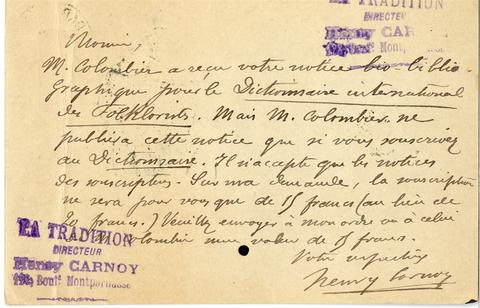 LA TRADITION
DIRECTEUR
Henry CARNOY
Montparnasse
M. Colombier a reçu votre notice bio-biblio-
graphique pour le Dictionnaire international
des Folkloristes. Mais M. Colombier ne
publiera cette notice que si vous souscrivez
au Dictionnaire. Il n'accepte que les notices
des souscripteurs. Sur ma demande, la souscription
ne sera pour vous que de 15 francs (au lieu de
20 francs.) Veuillez envoyer à mon ordre ou à celui
Colombier une valeur de 15 francs.
Votre
Henry Carnoy
LA TRADITION
DIRECTEUR
Henry CARNOY
Boulᵈ Montparnasse